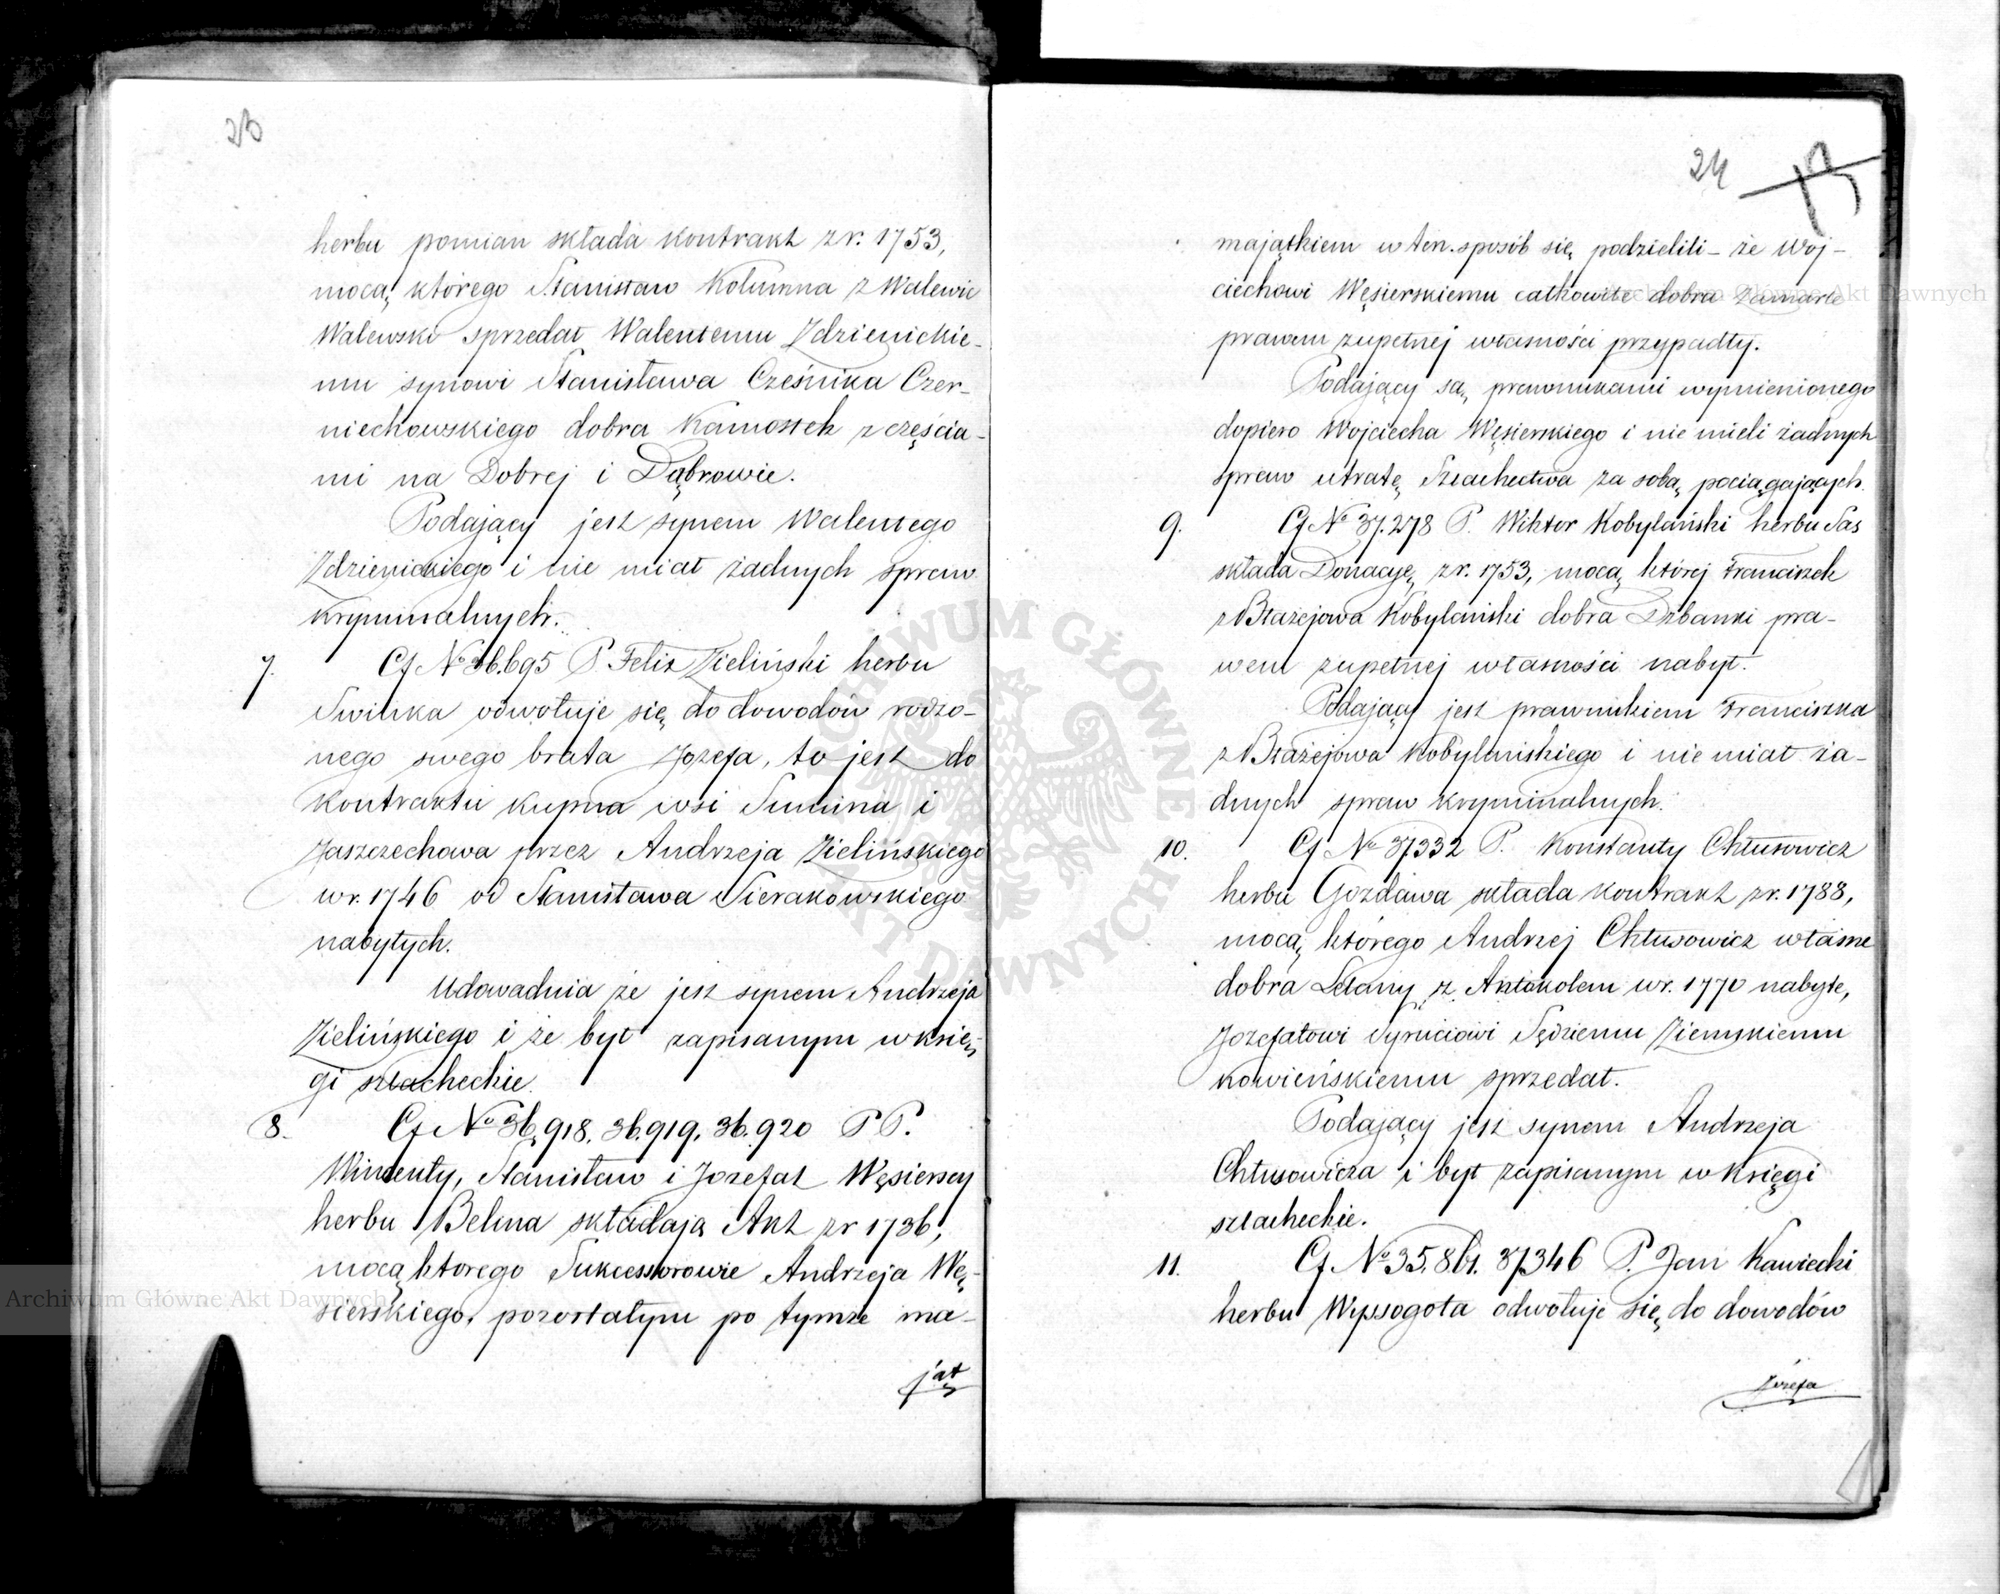 23
herbu pomian składa kontrakt z r. 1753,
mocą którego Stanisław Kolumna z Walewic
Walewski sprzedał Walentemu Zdzienickie-
mu synowi Stanisława Cześnika Czer-
niechowskiego dobra Kamostek z częścia-
mi na Dobrej i Dąbrowie.
Podający jest synem Walentego
Zdzienickiego i nie miał żadnych spraw
kryminalnych.
7. Cf No 36.695 P. Felix Zieliński herbu
Świnka odwołuje się do dowodów rodzo-
nego swego brata Józefa, to jest do
Kontraktu kupna wsi Sumina i
Jaszczechowa przez Andrzeja Zielińskiego
w r. 1746 od Stanisława Sierakowskiego
nabytych.
Udowadnia że jest synem Andrzeja
Zielińskiego i że był zapisanym w księ-
gi szlacheckie.
8. Cf No 36,918. 36.919. 36.920 PP.
Wincenty, Stanisław i Jozefat Węsierscy
herbu Belina składają Akt z r 1736,
mocą ktorego Sukcessorowie Andrzeja Wę-
sierskiego, pozostałym po tymże ma-
jąt
24
13
majątkiem w ten sposób się podzielili – że Woj-
ciechowi Węsierskiemu całkowite dobra Zamarte
prawem zupełnej własności przypadły.
Podający są prawnukami wymienionego
dopiero Wojciecha Węsierskiego i nie mieli żadnych
spraw utratę Szlachectwa za sobą pociągających.
9. Cf No 37.278 P. Wiktor Kobylański herbu Sas
składa Donacyę z r. 1753, mocą której Franciszek
z Błażejowa Kobylański dobra Dzbanki pra-
wem zupełnej własności nabył.
Podający jest prawnukiem Franciszka
z Błażejowa Kobylańskiego i nie miał ża-
dnych spraw kryminalnych.
10. Cf No 37332 P. Konstanty Chłusowicz
herbu Gozdawa składa kontrakt z r. 1788,
mocą którego Andrzej Chłusowicz własne
dobra Letany z Antokolem w r. 1770 nabyte,
Jozefatowi Syruciowi Sędziemu Ziemskiemu
kowieńskiemu sprzedał.
Podający jest synem Andrzeja
Chłusowicza i był zapisanym w księgi
szlacheckie.
11. Cf No 35,861. 37346 P. Jan Kawiecki
herbu Wyssogota odwołuje się do dowodów
Józefa
Archiwum Główne Akt Dawnych
Archiwum Główne Akt Dawnych
ARCHIWUM GŁÓWNE AKT DAWNYCH